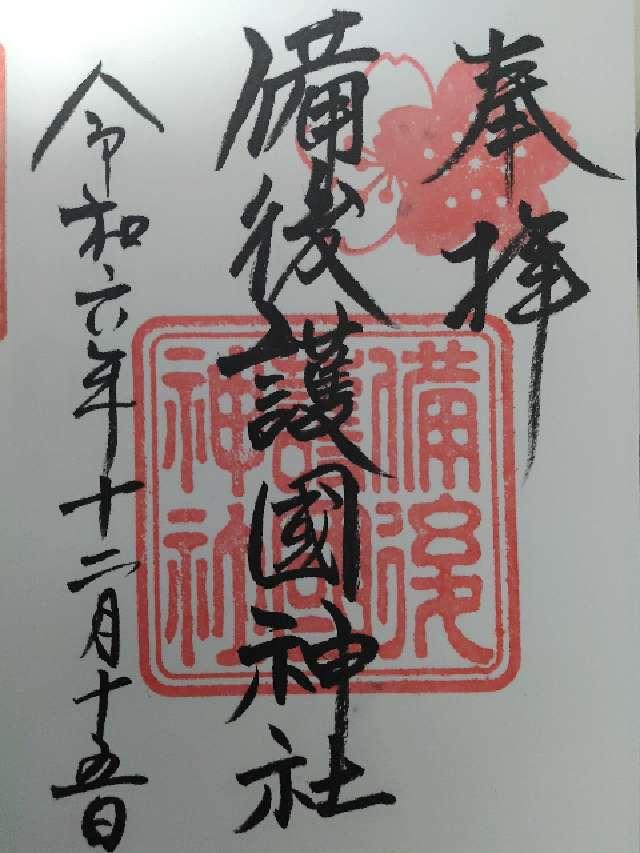 奉拝
備後護國神社
備後護國神社
令和六年十二月十五日